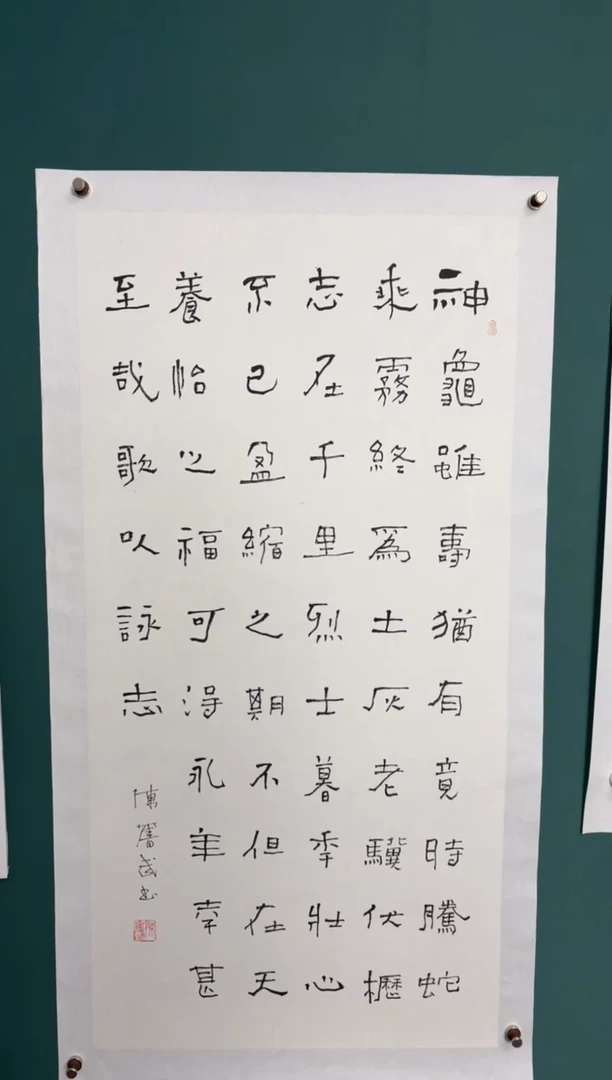 神龜雖壽猶有竟時騰蛇
乘霧終爲土灰老驥伏櫪
志在千里烈士暮年壯心
不已盈縮之期不但在天
養怡之福可得永年幸甚
至哉歌以詠志
陳